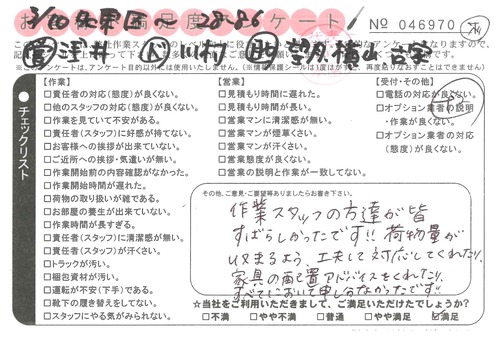 お客様満足度アンケート
3/10 作業日〜 28-86
No 046970
営 浅井 ド 川村 助 望月 横山 古澤
・このアンケートは、アンケート目的以外には使用いたしません。(※情報保護シールは1度はがすと、再度貼りなおすことはできません)
チェックリスト
【作業】
□責任者の対応(態度)が良くない。
□他のスタッフの対応(態度)が良くない。
□作業を見ていて不安がある。
□責任者(スタッフ)に好感が持てない。
□お客様への挨拶が出来ていない。
□ご近所への挨拶・気遣いが無い。
□作業開始前の内容確認がなかった。
□作業開始時間が遅れた。
□荷物の取り扱いが雑である。
□お部屋の養生が出来ていない。
□作業時間が長すぎる。
□責任者(スタッフ)に清潔感が無い。
□責任者(スタッフ)が汗くさい。
□トラックが汚い。
□梱包資材が汚い。
□運転が不安(下手)である。
□靴下の履き替えをしてない。
□スタッフにやる気がみられない。
【営業】
□見積もり時間に遅れた。
□見積もり時間が長い。
□営業マンに清潔感が無い。
□営業マンが煙草くさい。
□営業マンが汗くさい。
□営業態度が良くない。
□営業の説明と作業が一致してない。
【受付・その他】
□電話の対応が良くない。
□オプション業者の説明
・作業が良くない。
□オプション業者の対応
(態度)が良くない。
その他、ご意見・ご要望等ありましたらお書き下さい。
作業スタッフの方達が皆
すばらしかったです!! 荷物量が
収まるよう、工夫して対応してくれたり、
家具の配置アドバイスをくれたり、
すべてにおいて申し分なかったです!!
☆当社をご利用いただきまして、ご満足いただけたでしょうか?
□不満 □やや不満 □普通 □やや満足 ☑満足